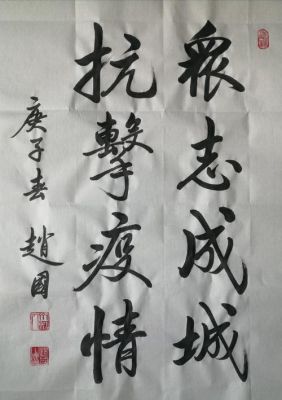 眾志成城
抗擊疫情
庚子春 趙國